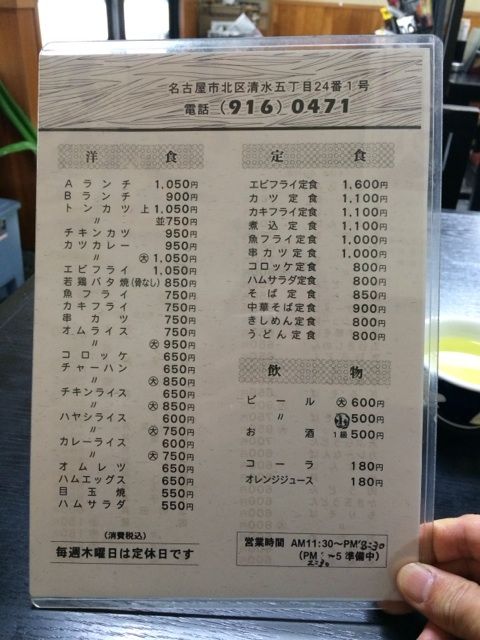 名古屋市北区清水五丁目24番1号
電話(916)0471
洋食
Aランチ 1,050円
Bランチ 900円
トンカツ 上1,050円
〃 並750円
チキンカツ 950円
カツカレー 950円
〃 大1,050円
エビフライ 1,050円
若鶏バタ焼(骨なし) 850円
魚フライ 750円
カキフライ 750円
串カツ 750円
オムライス 750円
〃 大950円
コロッケ 650円
チャーハン 650円
〃 大850円
チキンライス 650円
〃 大850円
ハヤシライス 600円
〃 大750円
カレーライス 600円
〃 大750円
オムレツ 650円
ハムエッグス 650円
目玉焼 550円
ハムサラダ 550円
(消費税込)
毎週木曜日は定休日です
定食
エビフライ定食 1,600円
カツ定食 1,100円
カキフライ定食 1,100円
煮込定食 1,100円
魚フライ定食 1,000円
串カツ定食 1,000円
コロッケ定食 800円
ハムサラダ定食 800円
そば定食 850円
中華そば定食 900円
きしめん定食 800円
うどん定食 800円
飲物
ビール 大600円
〃 500円
お酒 1級500円
コーラ 180円
オレンジジュース 180円
営業時間 AM11:30〜PM8:30
(PM2:30〜5準備中)